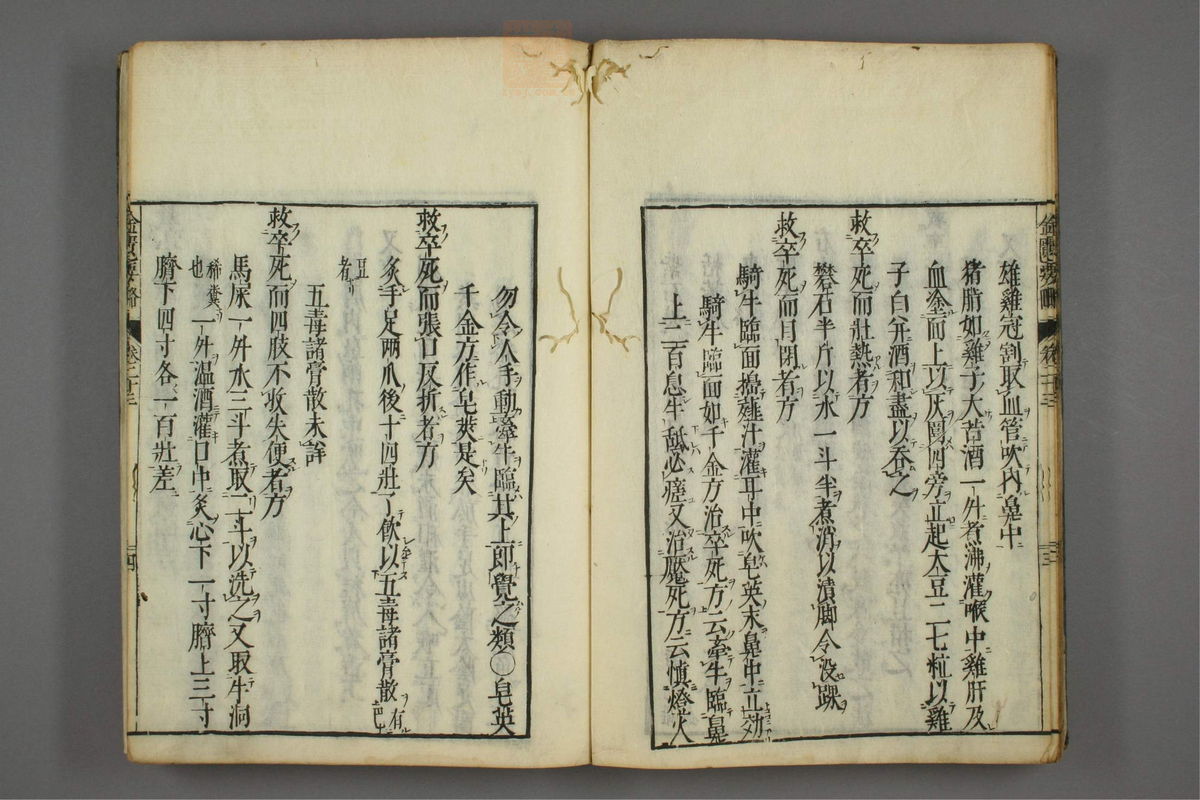 雄雞冠割取血管吹内鼻中
猪脂如雞子大苦酒一升煮沸灌喉中雞肝及
血塗面上以灰圍四旁立起大豆二七粒以雞
子白并酒和盡以吞之
救卒死而壯熱者方
礬石半斤以水一斗半煮消以漬脚令没踝
救卒死而目閉者方
騎牛臨面擣薤汁灌耳中吹皂莢末鼻中立効
騎牛臨面如千金方治卒死方云牽牛臨鼻
上二百息牛舐必瘥又治魘死方云慎燈火
勿令人手動牽牛臨其上即覺之類○皂莢
千金方作皂莢是矣
救卒死而張口反折者方
灸手足兩爪後十四壯了飲以五毒諸膏散有巴
豆者
五毒諸膏散未詳
救卒死而四肢不收失便者方
馬屎一升水三斗煮取二斗以洗之又取牛洞
稀糞也一升温酒灌口中灸心下一寸臍上三寸
臍下四寸各一百壯差